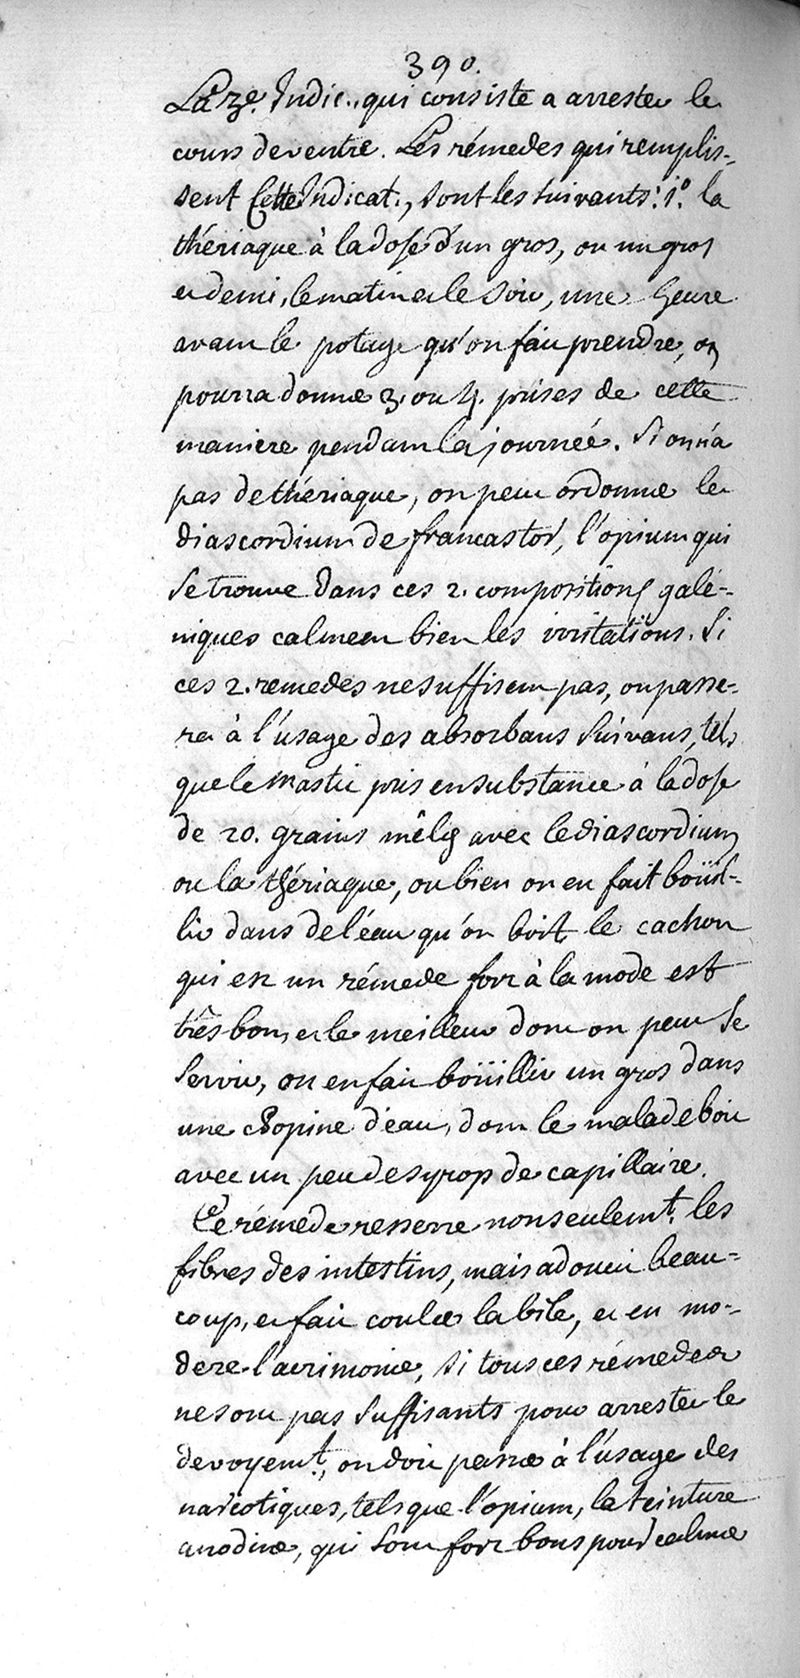 390.
La 3e. Indic., qui consiste a arrester le
cours de ventre. Les rémedes qui remplis-
sent Cette Indicat., sont les suivants: 1.º la
thériaque à la dose d'un gros, ou un gros
et demi, le matin et le soir, une heure
avant le potage qu'on fait prendre, on
pourra donner 3. ou 4. prises de cette
maniere pendant la journéé. Si on n'a
pas de thériaque, on peut ordonner le
diascordium de francastor, l'opium qui
se trouve dans ces 2. compositions galé-
niques calment bien les irritations. Si
ces 2. remedes ne suffisent pas, on passe-
ra à l'usage des absorbans suivans, tels
que le mastic pris en substance à la dose
de 20. grains mêlés avec le diascordium
ou la thériaque, ou bien on en fait boüil-
lir dans de l'éau qu'on boit, le cachou
qui est un rémede fort à la mode est
três bon, et le meilleur dont on peut se
servir, on en fait boüillir un gros dans
une chopine d'eau, dont le malade boit
avec un peu de syrop de capillaire.
Ce rémede resserre non seulemt. les
fibres des intestins, mais adoucit beau-
coup, et fait couler la bile, et en mo-
dere l'acrimonie, si tous ces rémedes
ne sont pas suffisants pour arrester le
devoyemt., on doit passer à l'usage des
narcotiques, tels que l'opium, la teinture
anodine, qui sont fort bons pour calmer